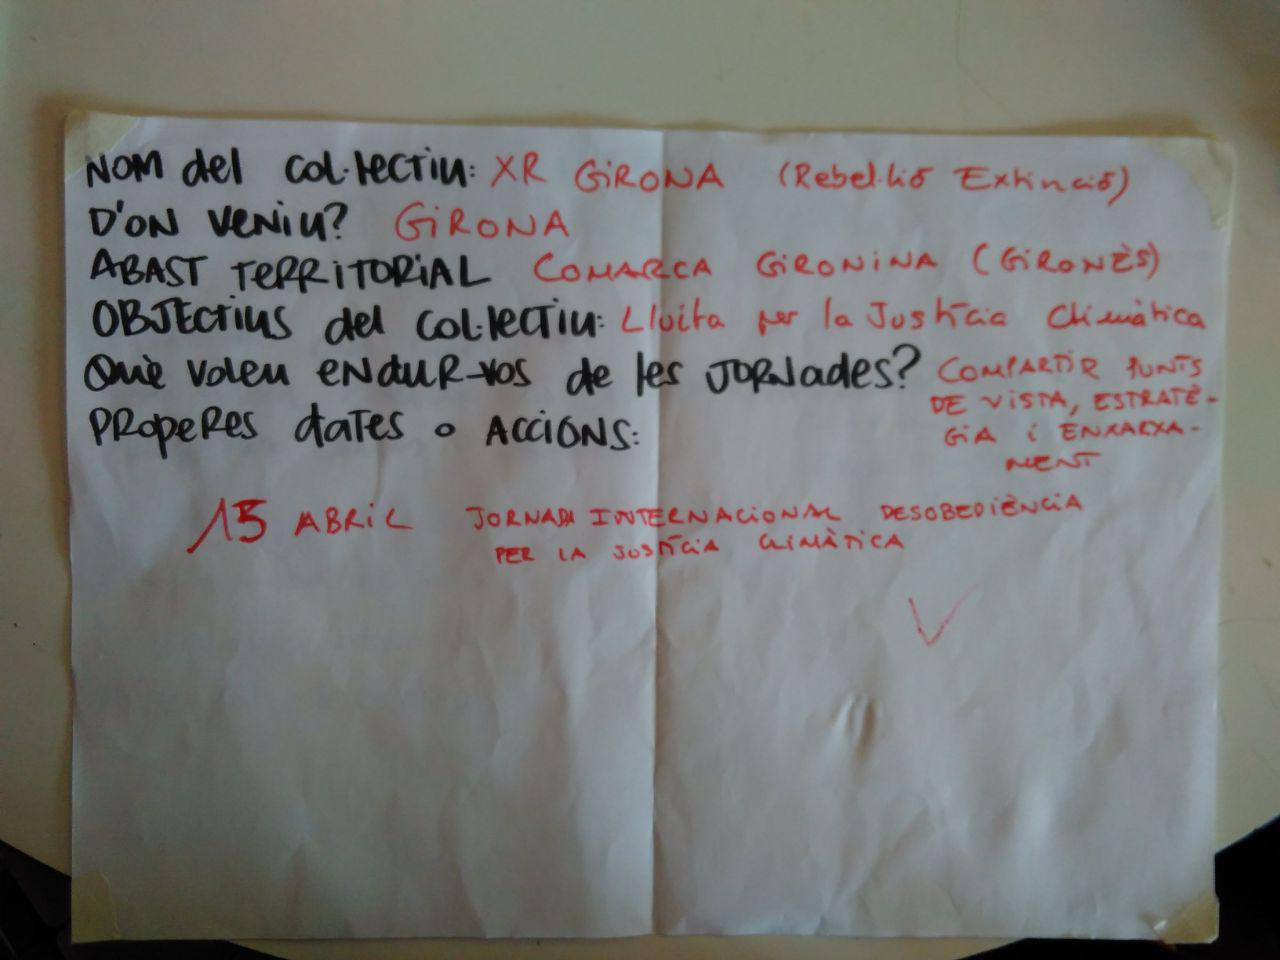 NOM del col·lectiu: XR GIRONA (Rebel·lió Extinció)
D'ON VENIU? GIRONA
ABAST TERRITORIAL COMARCA GIRONINA (GIRONÈS)
OBJECTIUS del col·lectiu: Lluita per la Justícia Climàtica
Què voleu ENDUR-vos de les JORNades? COMPARTIR PUNTS
DE VISTA, ESTRATÈ-
GIA i ENXARXA-
MENT
PROPERES dATES o ACCIONS:
15 ABRIL JORNADA INTERNACIONAL DESOBEDIÈNCIA
PER LA JUSTÍCIA CLIMÀTICA